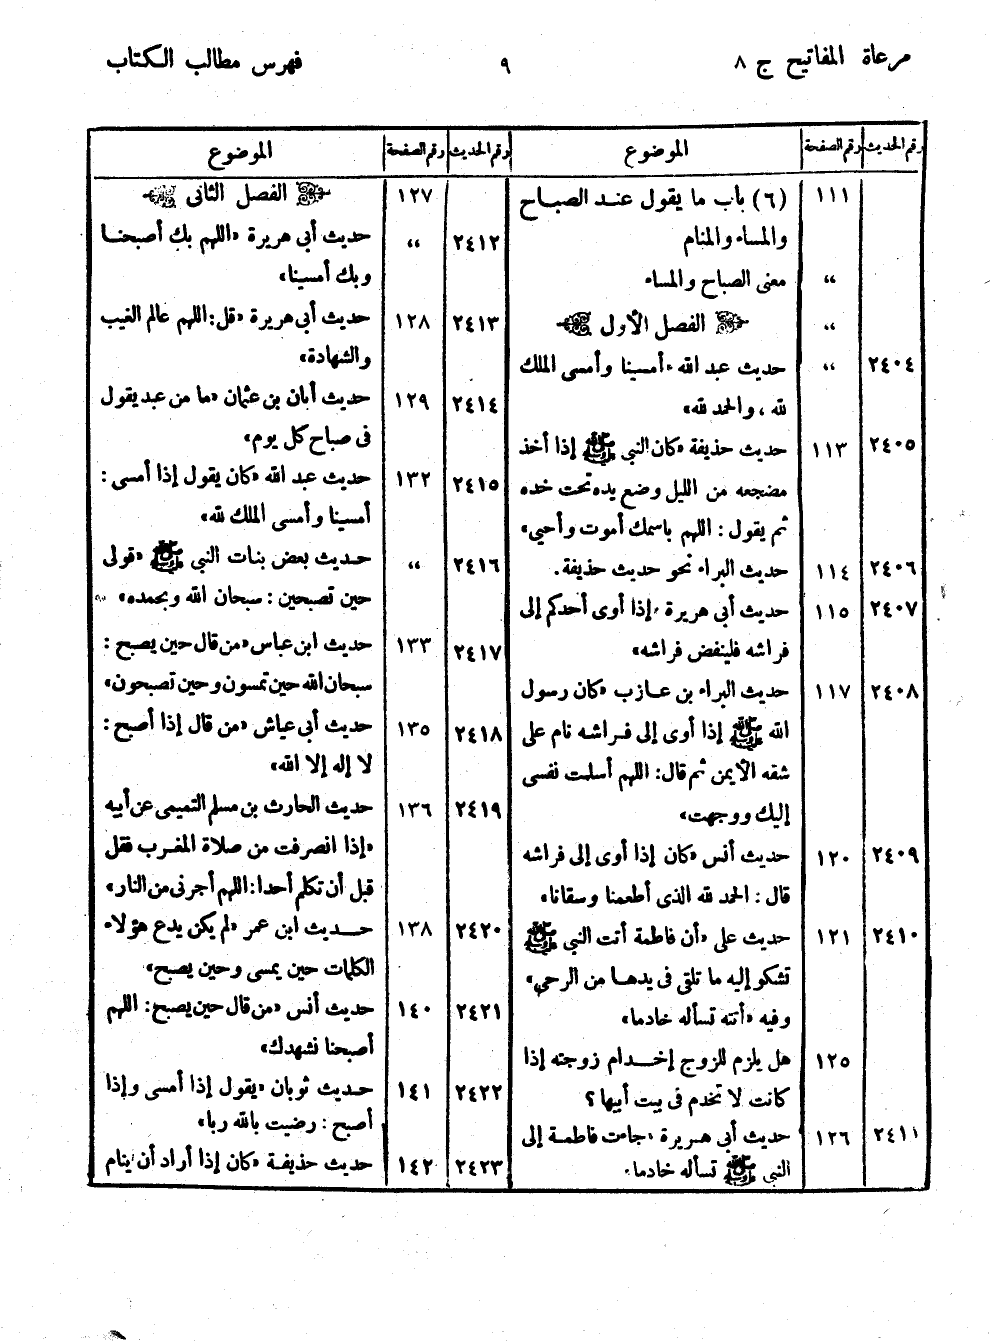 مرعاة المفاتيح ج ٨ ٩ فهرس مطالب الكتاب
رقم الحديث رقم الصفحة الموضوع
١١١ (٦) باب ما يقول عند الصباح
والمساء والمنام
،، معنى الصباح والمساء
،، الفصل الأول
٢٤٠٤ ،، حديث عبد الله «أمسينا وأمسى الملك
لله ، والحمد لله»
٢٤٠٥ ١١٣ حديث حذيفة «كان النبي ﷺ إذا أخذ
مضجعه من الليل وضع يده تحت خده
ثم يقول : اللهم باسمك أموت وأحيى»
٢٤٠٦ ١١٤ حديث البراء نحو حديث حذيفة .
٢٤٠٧ ١١٥ حديث أبي هريرة «إذا أوى أحدكم إلى
فراشه فلينفض فراشه»
٢٤٠٨ ١١٧ حديث البراء بن عازب «كان رسول
الله ﷺ إذا أوى إلى فراشه نام على
شقه الأيمن ثم قال: اللهم أسلمت نفسى
إليك ووجهت»
٢٤٠٩ ١٢٠ حديث أنس «كان إذا أوى إلى فراشه
قال : الحمد لله الذى أطعمنا وسقانا»
٢٤١٠ ١٢١ حديث على «أن فاطمة أتت النبي ﷺ
تشكو إليه ما تلقى فى يدها من الرحى»
وفيه «أتته تسأله خادما»
١٢٥ هل يلزم للزوج إخدام زوجته إذا
كانت لا تخدم فى بيت أبيها ؟
٢٤١١ ١٢٦ حديث أبي هريرة «جاءت فاطمة إلى
النبي ﷺ تسأله خادما»
رقم الحديث رقم الصفحة الموضوع
١٢٧ الفصل الثانى
٢٤١٢ ،، حديث أبي هريرة «اللهم بك أصبحنا
وبك أمسينا»
٢٤١٣ ١٢٨ حديث أبي هريرة «قل: اللهم عالم الغيب
والشهادة»
٢٤١٤ ١٢٩ حديث أبان بن عثمان «ما من عبد يقول
فى صباح كل يوم»
٢٤١٥ ١٣٢ حديث عبد الله «كان يقول إذا أمسى :
أمسينا وأمسى الملك لله»
٢٤١٦ ،، حديث بعض بنات النبي ﷺ «قولى
حين تصبحين : سبحان الله وبحمده»
٢٤١٧ ١٣٣ حديث ابن عباس «من قال حين يصبح :
سبحان الله حين تمسون وحين تصبحون»
٢٤١٨ ١٣٥ حديث أبي عياش «من قال إذا أصبح :
لا إله إلا الله»
٢٤١٩ ١٣٦ حديث الحارث بن مسلم التميمى عن أبيه
«إذا انصرفت من صلاة المغرب فقل
قبل أن تكلم أحدا: اللهم أجرنى من النار»
٢٤٢٠ ١٣٨ حديث ابن عمر «لم يكن يدع هؤلاء
الكلمات حين يمسى وحين يصبح»
٢٤٢١ ١٤٠ حديث أنس «من قال حين يصبح : اللهم
أصبحنا نشهدك»
٢٤٢٢ ١٤١ حديث ثوبان «يقول إذا أمسى وإذا
أصبح : رضيت بالله ربا»
٢٤٢٣ ١٤٢ حديث حذيفة «كان إذا أراد أن ينام